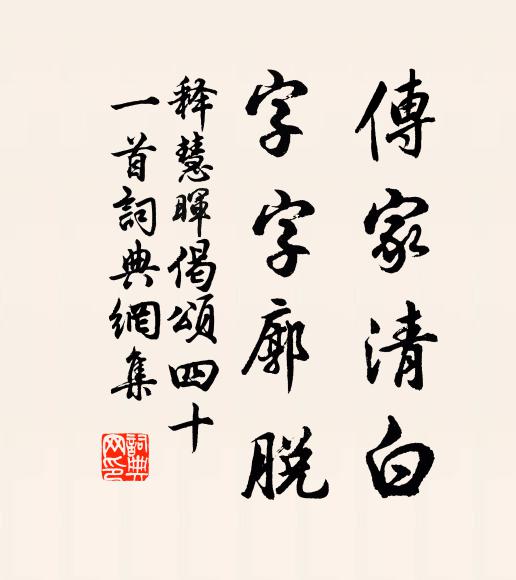 傳家清白
字字廓脫
释慧暉偈頌四十
一首詞典網集
詞典网印